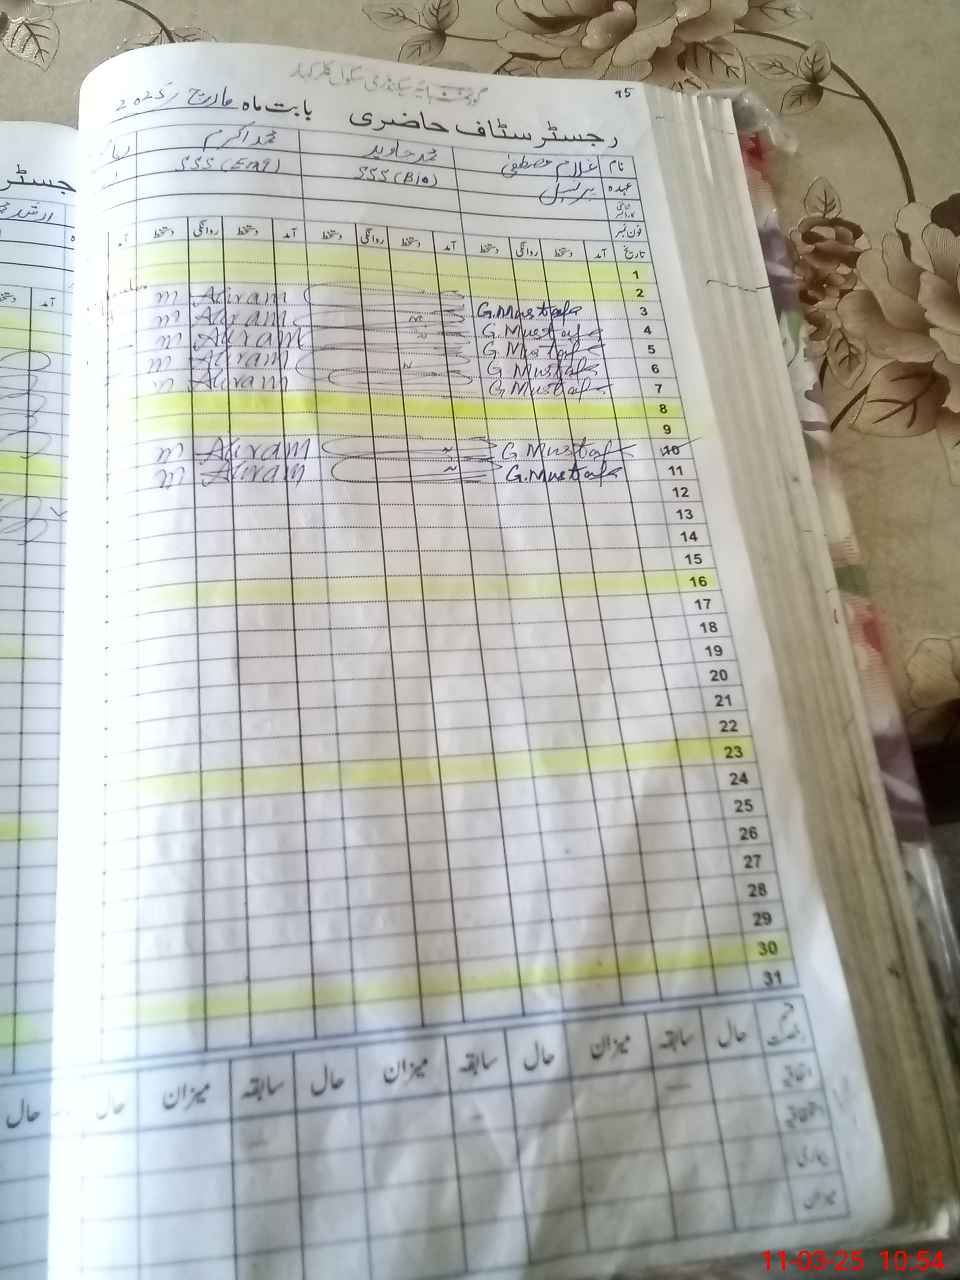 95
گورنمنٹ ہائیر سیکنڈری سکول کلرکہار
رجسٹر سٹاف حاضری بابت ماہ مارچ 2025
نام غلام مصطفیٰ محمد جاوید محمد اکرم
عہدہ پرنسپل SSS (Bio) SSS (Eng)
فون نمبر
تاریخ آمد دستخط روانگی دستخط آمد دستخط روانگی دستخط آمد دستخط روانگی دستخط
1
2
3 G.Mustafa Akram m
4 G.Mustafa Akram m
5 G Mustafa Akram m
6 G Mustafa Akram m
7 G Mustafa Akram m
8
9
10 G Mustafa Akram m
11 G.Mustafa Akram m
12
13
14
15
16
17
18
19
20
21
22
23
24
25
26
27
28
29
30
31
قسم رخصت حال سابقہ میزان حال سابقہ میزان حال سابقہ میزان حال
اتفاقیہ
استحقاقیہ
بیماری
میزان
رجسٹر
ارشد
آمد
حال
11-03-25 10:54